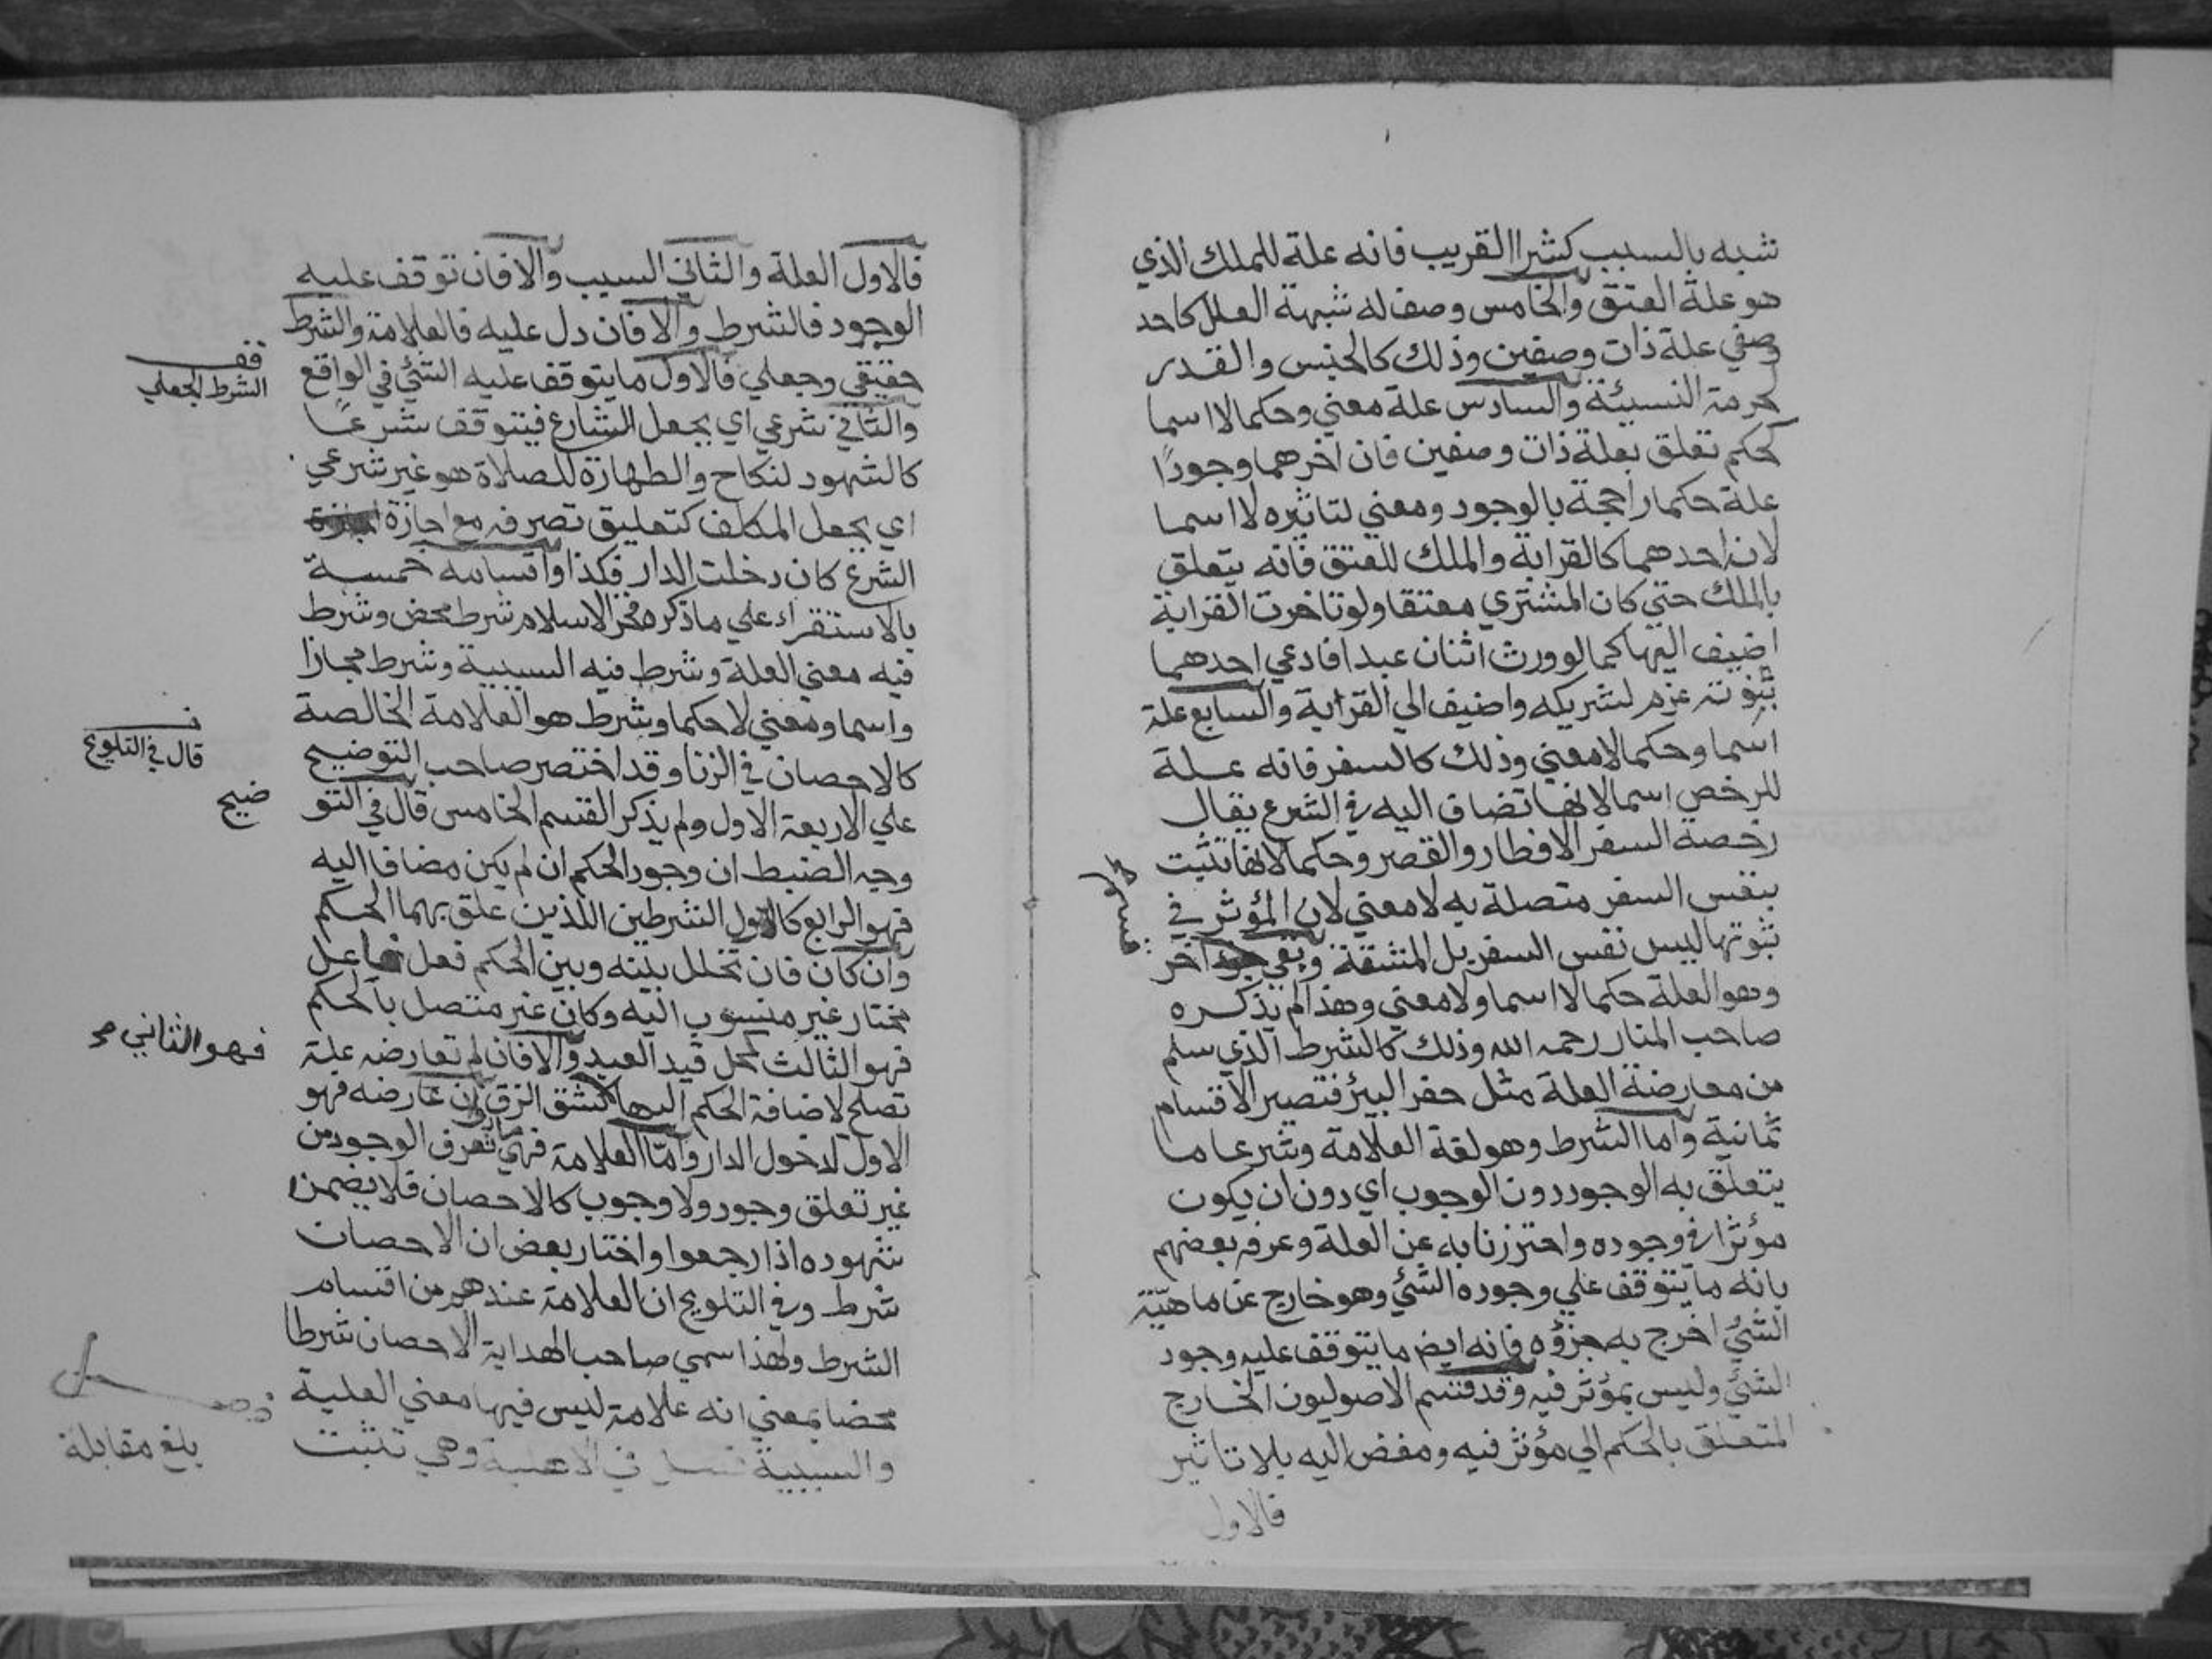 شبه بالسبب كشرا القريب فانه علة للملك الذي
هو علة العتق والخامس وصف له شبهة العلل كاحد
وصفي علة ذات وصفين وذلك كالجنس والقدر
لحرمة النسيئة والسادس علة معني وحكما لا اسما
كحكم تعلق بعلة ذات وصفين فان اخرهما وجودًا
علة حكما راجحة بالوجود ومعني لتاثيره لا اسما
لان احدهما كالقرابة والملك للعتق فانه يتعلق
بالملك حتي كان المشتري معتقا ولو تاخرت القرابة
اضيف اليها كما لو ورث اثنان عبدا فادعي احدهما
بنوته غرم لشريكه واضيف الي القرابة والسابع علة
اسما وحكما لا معني وذلك كالسفر فانه علة
للرخص اسما لانها تضاف اليه في الشرع يقال
رخصة السفر الافطار والقصر وحكما لانها تثبت
بنفس السفر متصلة به لا معني لان المؤثر في
ثبوتها ليس نفس السفر بل المشقة وبقي اخر
قسم
وهو العلة حكما لا اسما ولا معني وهذا لم يذكره
صاحب المنار رحمه الله وذلك كالشرط الذي سلم
من معارضة العلة مثل حفر البئر فتصير الاقسام
ثمانية واما الشرط وهو لغة العلامة وشرعا ما
يتعلق به الوجود دون الوجوب اي دون ان يكون
مؤثرا في وجوده واحترزنا به عن العلة وعرفه بعضهم
بانه ما يتوقف علي وجوده الشئ وهو خارج عن ماهيّة
الشئ اخرج به جزؤه فانه ايضا ما يتوقف عليه وجود
الشئ وليس بمؤثر فيه وقد قسم الاصوليون الخارج
المتعلق بالحكم الي مؤثر فيه ومفض اليه بلا تاثير
فالاول
فالاول العلة والثاني السبب والا فان توقف عليه
الوجود فالشرط والا فان دل عليه فالعلامة والشرط
حقيقي وجعلي فالاول ما يتوقف عليه الشئ في الواقع
قف
الشرط الجعلي
والثاني شرعي اي بجعل الشارع فيتوقف شرعًا
كالشهود لنكاح والطهارة للصلاة هو غير شرعي
اي بجعل المكلف كتعليق تصرفه مع اجازة
الشرع كان دخلت الدار فكذا واقسامه خمسة
بالاستقراء علي ما ذكره فخر الاسلام شرط محض وشرط
فيه معني العلة وشرط فيه السببية وشرط مجازا
واسما ومعني لا حكما وشرط هو العلامة الخالصة
كالاحصان في الزنا وقد اختصر صاحب التوضيح
قال في التلويح
علي الاربعة الاول ولم يذكر القسم الخامس قال في التو
ضيح
وجه الضبط ان وجود الحكم ان لم يكن مضافا اليه
فهو الرابع كاول الشرطين اللذين علق بهما الحكم
وان كان فان تخلل بينه وبين الحكم فعل فاعل
مختار غير منسوب اليه وكان غير متصل بالحكم
فهو الثالث كحل قيد العبد والا فان لم تعارضه علة
فهو الثاني صح
تصلح لاضافة الحكم اليها كشق الزق وان عارضه فهو
الاول لدخول الدار وامّا العلامة فهي ما تعرف الوجود من
غير تعلق وجود ولا وجوب كالاحصان فلا يضمن
شهوده اذا رجعوا واختار بعض ان الاحصان
شرط وفي التلويح ان العلامة عندهم من اقسام
الشرط ولهذا سمي صاحب الهداية الاحصان شرطا
محضا بمعني انه علامة ليس فيها معني العلية
والسببية في الاهلية وهي تثبت
بلغ مقابلة